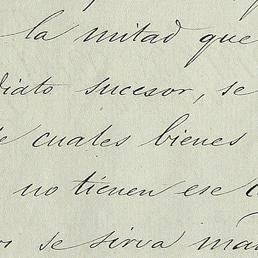 la mitad que
diato sucesor, se
e cuales bienes
no tienen ese c
se sirva man